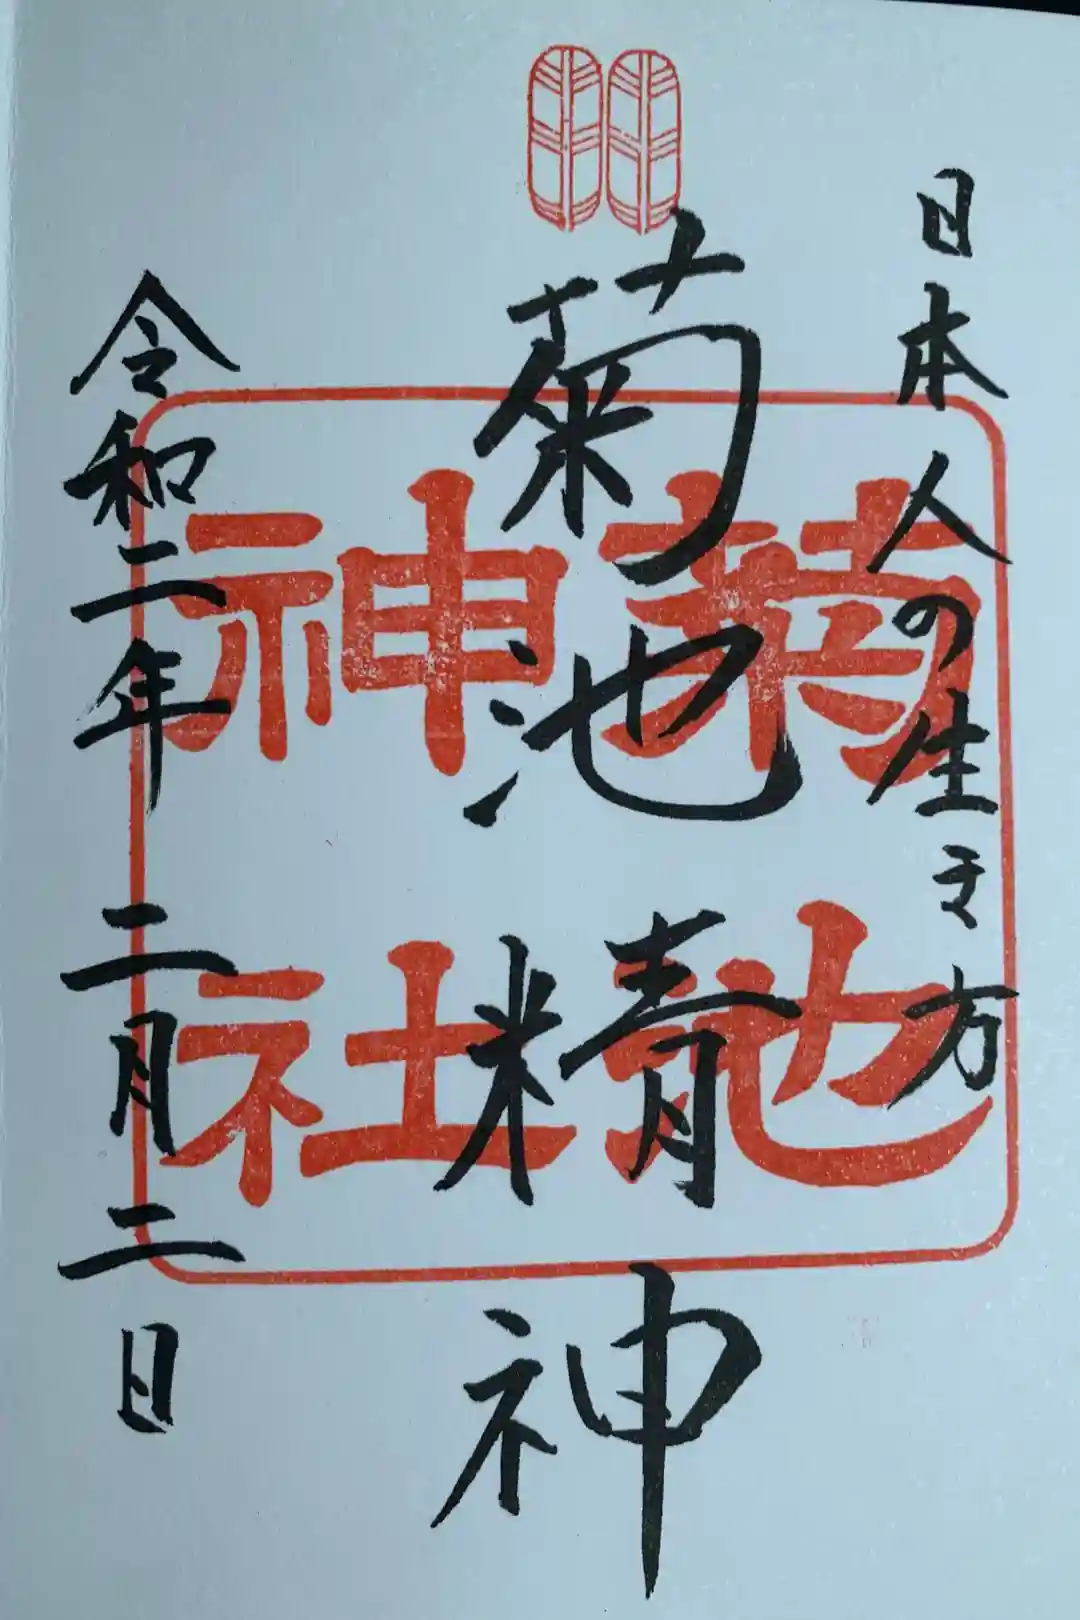 日本人の生き方
菊池精神
令和二年二月二日
菊池
神社